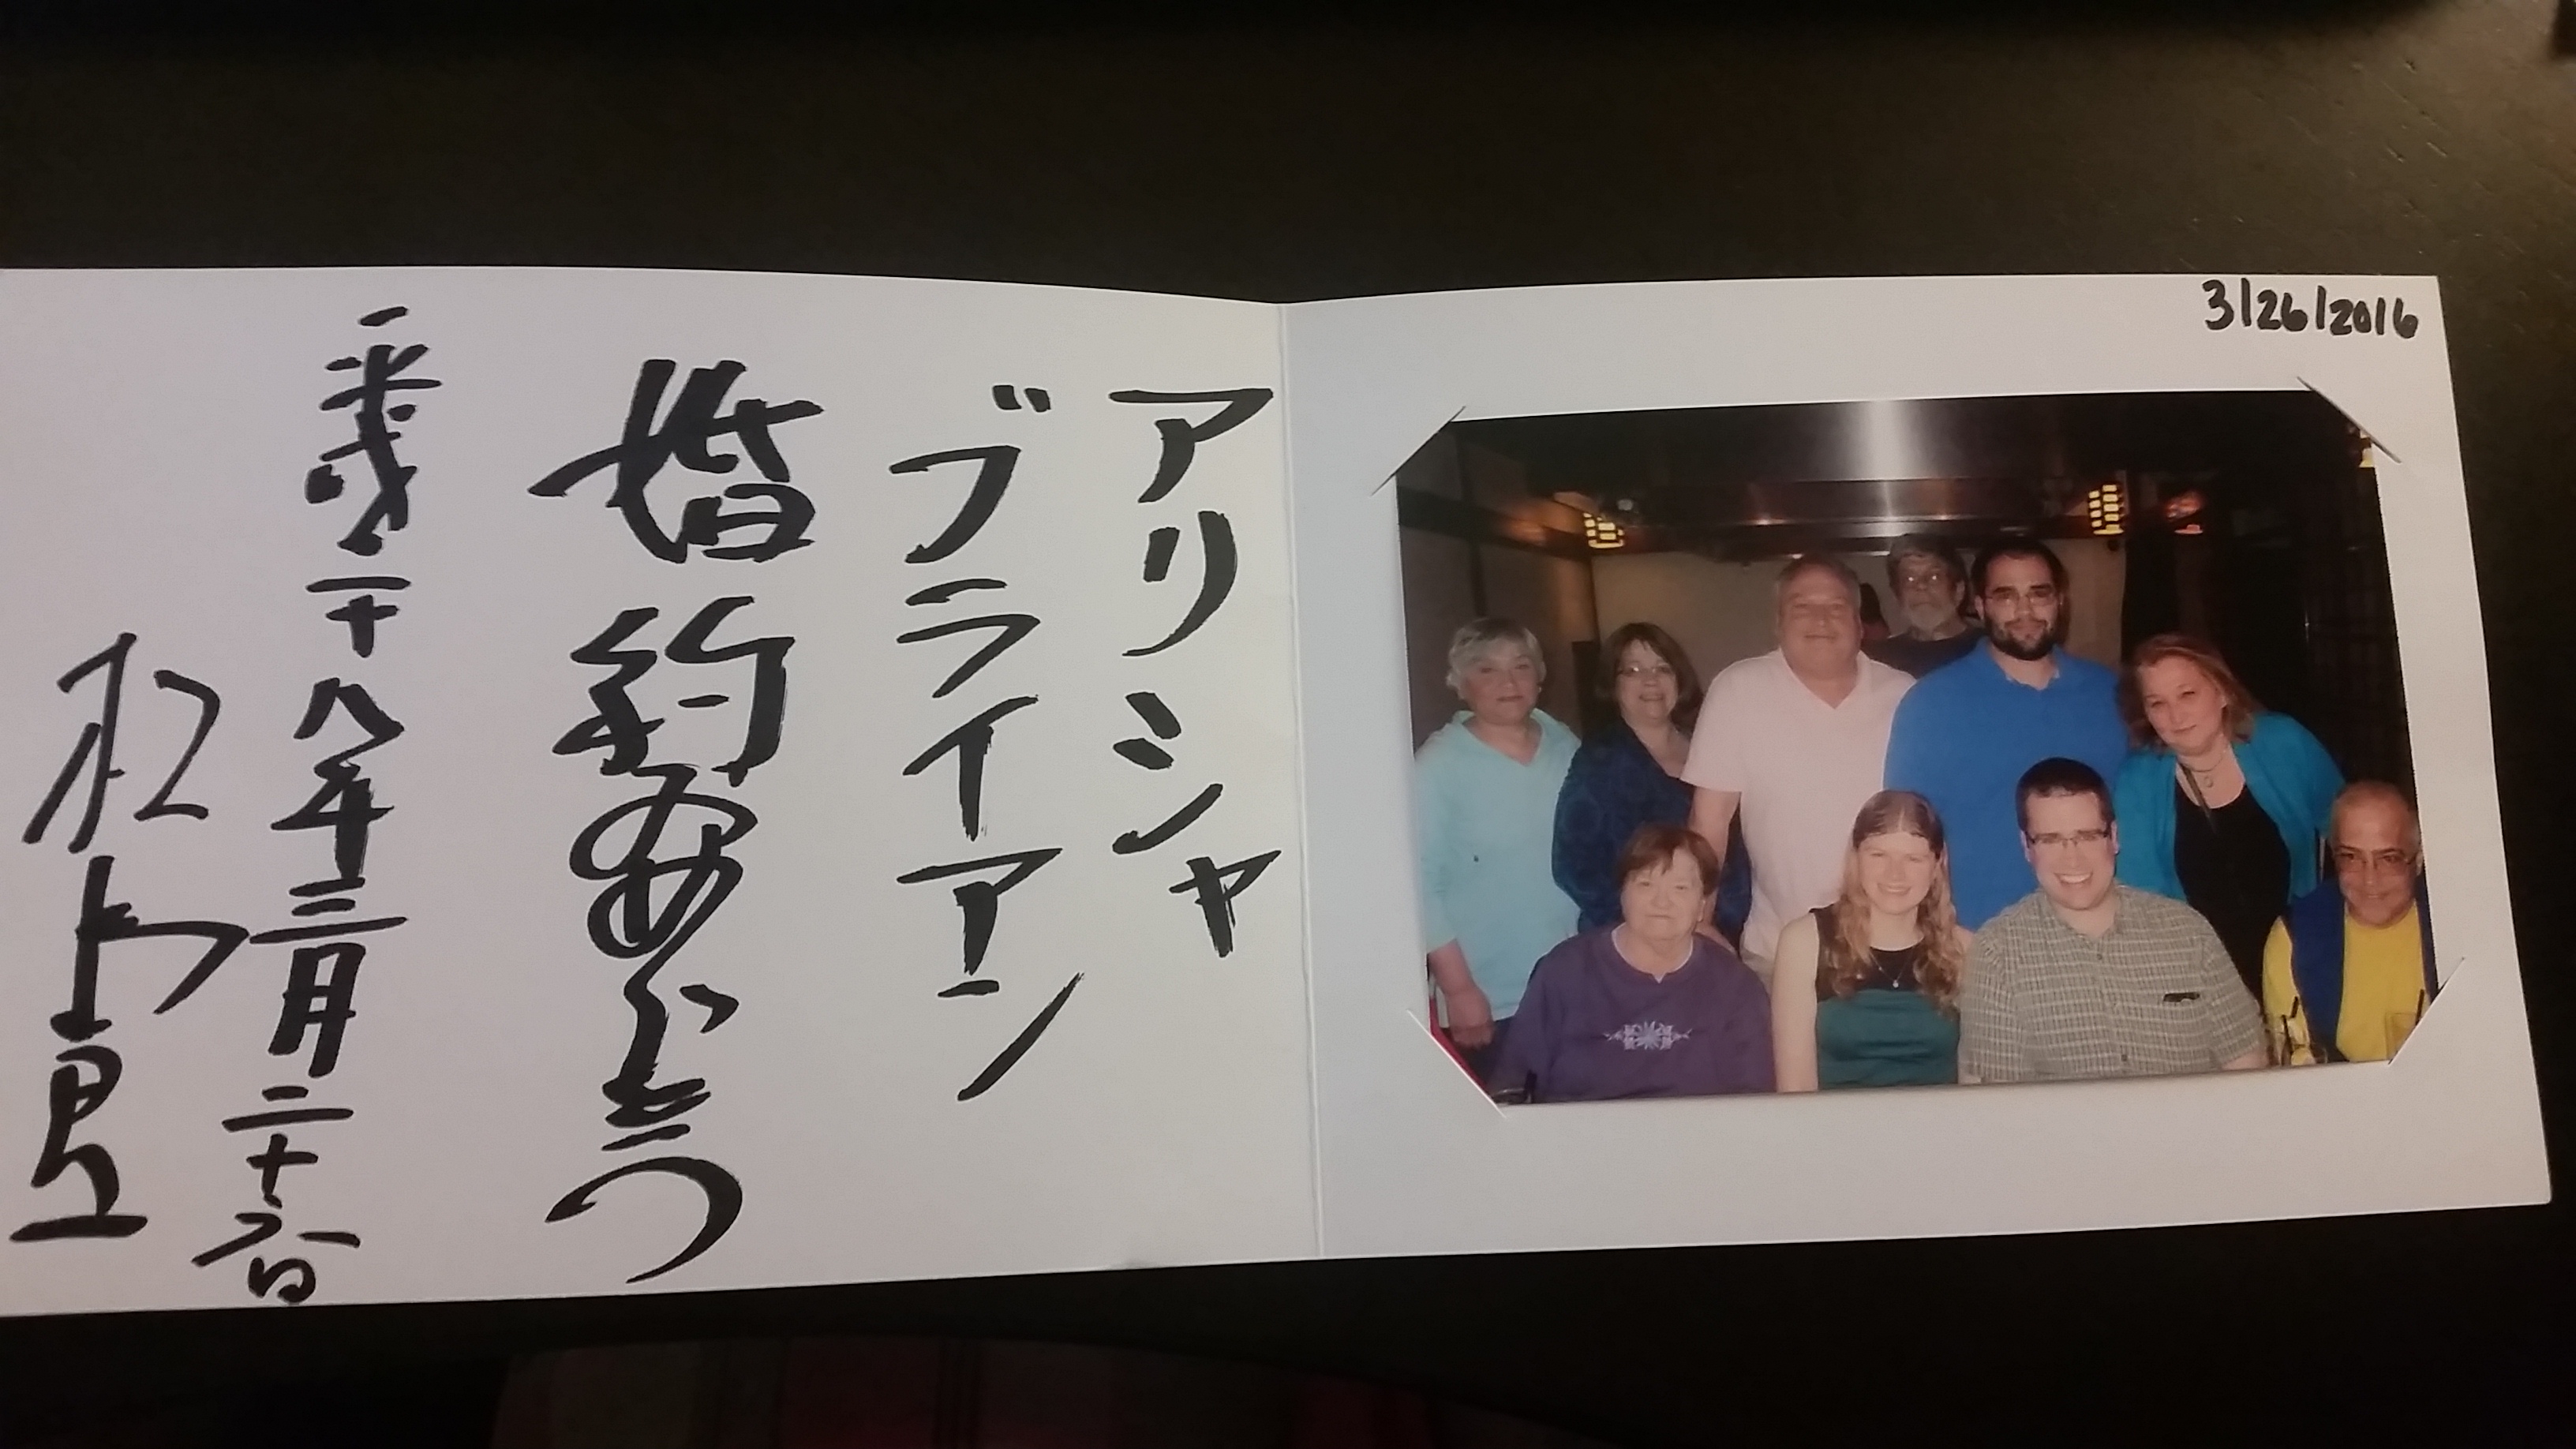 3/26/2016
アリシャ
ブライアン
婚約おめでとう
平成二十八年三月二十六日